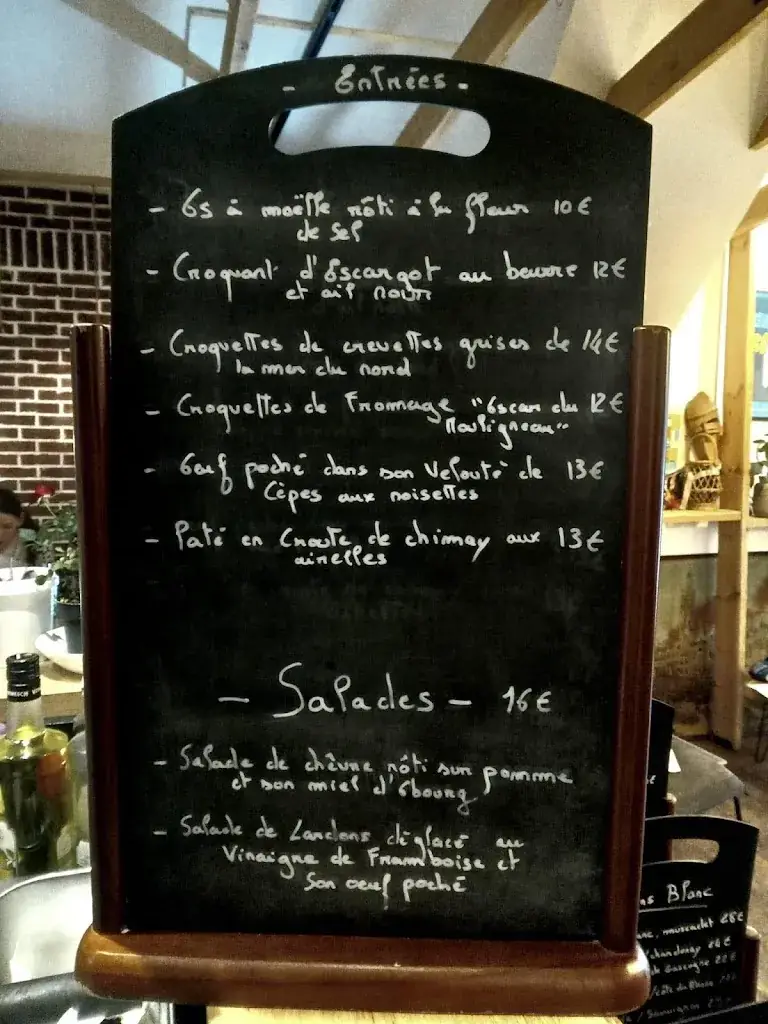 - Entrées -
- Os à moëlle rôti à la fleur 10€
de sel
- Croquant d'Escargot au beurre 12€
et ail noir
- Croquettes de crevettes grises de 14€
la mer du nord
- Croquettes de Fromage "Escan du 12€
- Oeuf poché dans son Velouté de 13€
Cèpes aux noisettes
- Paté en Croute de chimay aux 13€
airelles
- Salades - 16€
- Salade de chèvre rôti sur pomme
et son miel d'Obourg
- Salade de Lardons déglacé au
Vinaigre de Framboise et
Son oeuf poché
ns Blanc
muscadet
Gascogne
Sauvignon